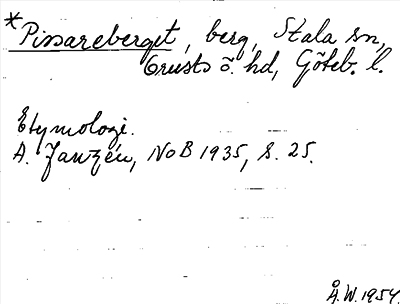 *Pissareberget, berg, Stala sn,
Orusts ö. hd, Göteb. l.
Etymologi.
A. Janzén, NoB 1935, s. 25.
Å.W. 1954.